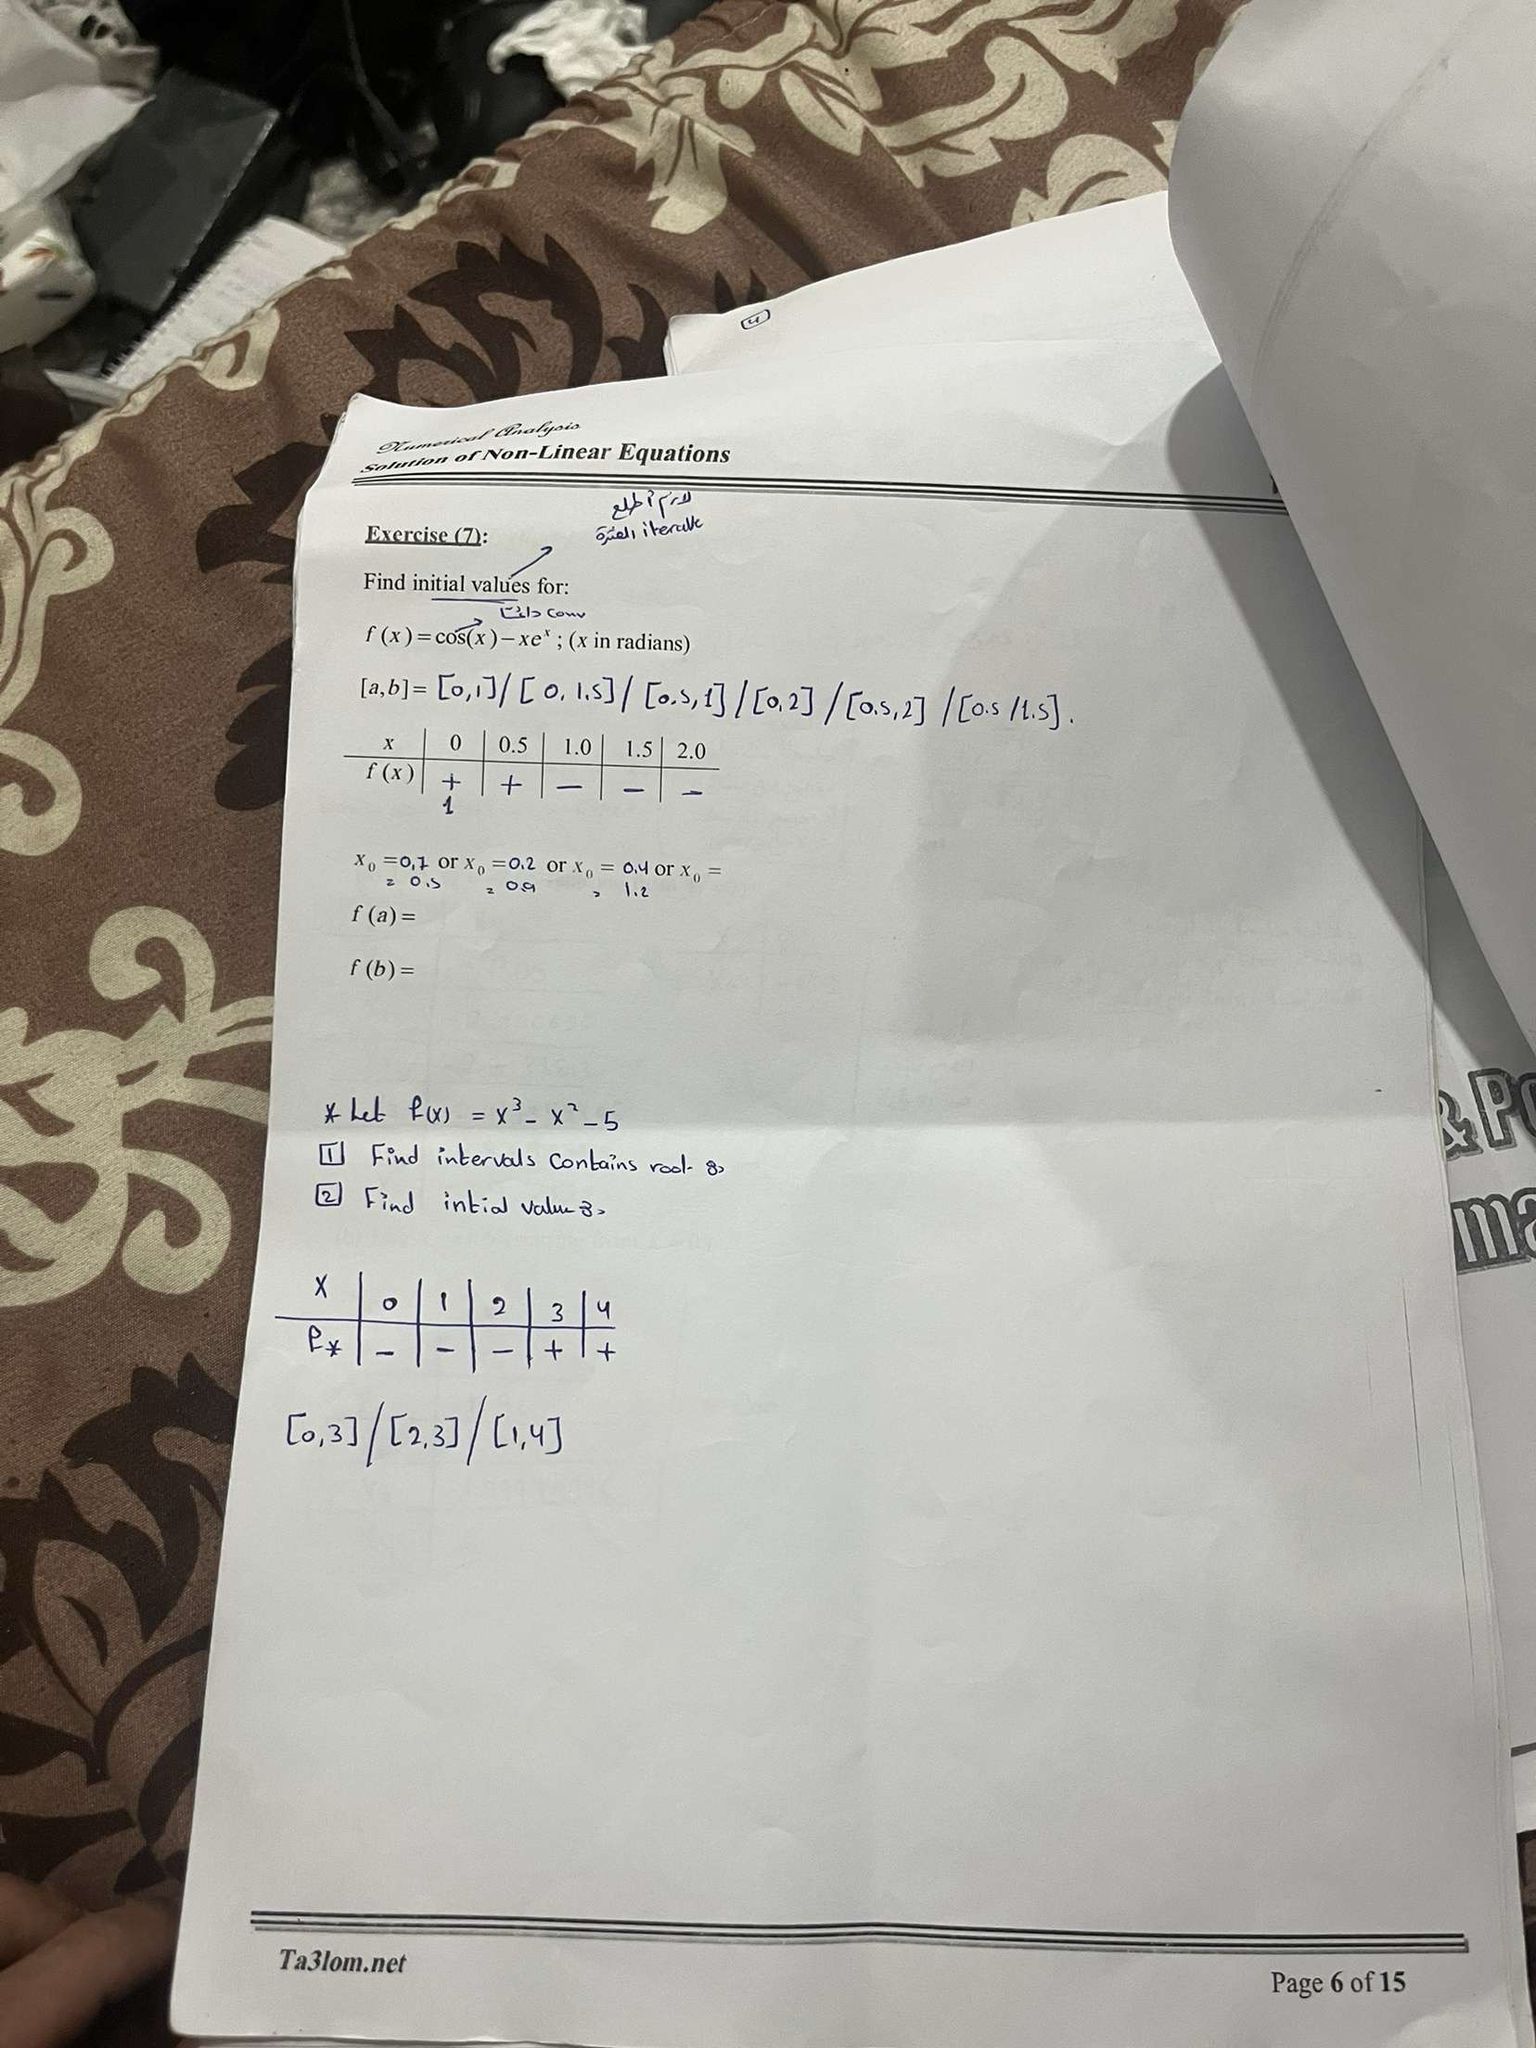 4
Numerical Analysis
Solution of Non-Linear Equations
Exercise (7):
لازم أطلع
الفترة
Find initial values for:
دائماً conv
f (x) = cos(x) – xeˣ ; (x in radians)
[a,b] = [0,1] / [0, 1.5] / [0.5, 1] / [0,2] / [0.5, 2] / [0.5 / 1.5] .
x 0 0.5 1.0 1.5 2.0
f (x) + + – – –
1
x₀ = 0,1 or x₀ = 0.2 or x₀ = 0.4 or x₀ =
= 0.5 = 0.9 = 1.2
f (a) =
f (b) =
* Let f(x) = x³ – x² – 5
1 Find intervals Contains root
2 Find intial value
X 0 1 2 3 4
– – – + +
[0,3] / [2,3] / [1,4]
& Po
ma
Ta3lom.net
Page 6 of 15